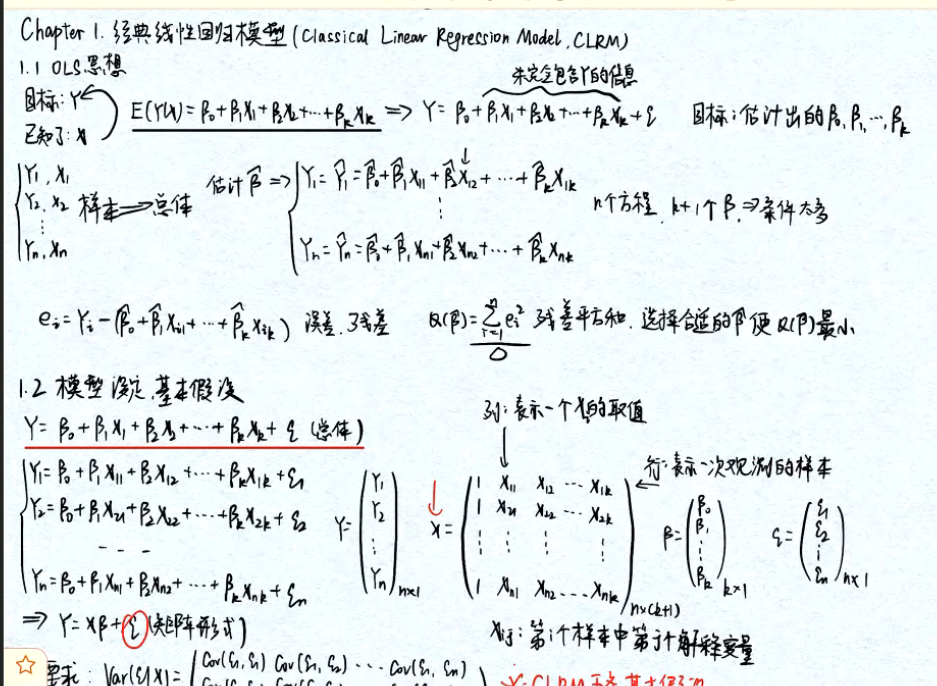 Chapter 1. 经典线性回归模型 (Classical Linear Regression Model, CLRM)
1.1 OLS思想
未完全包含Y的信息
目标: Y
已知了: X
E(Y|X) = β₀+β₁X₁+β₂X₂+⋯+βₖXₖ ⇒ Y = β₀+β₁X₁+β₂X₂+⋯+βₖXₖ+ε 目标:估计出的β₀,β₁,⋯,βₖ
Y₁, X₁
Y₂, X₂
⋮
Yₙ, Xₙ
样本⇒总体
估计β̂ ⇒
Y₁=Ŷ₁=β̂₀+β̂₁X₁₁+β̂₂X₁₂+⋯+β̂ₖX₁ₖ
⋮
Yₙ=Ŷₙ=β̂₀+β̂₁Xₙ₁+β̂₂Xₙ₂+⋯+β̂ₖXₙₖ
n个方程, k+1个β, ⇒条件太多
eᵢ=Yᵢ-(β̂₀+β̂₁Xᵢ₁+⋯+β̂ₖXᵢₖ) 误差,残差 Q(β̂)=∑ⁿᵢ₌₁eᵢ² 残差平方和, 选择合适的β̂使Q(β̂)最小
0
1.2 模型设定,基本假设
Y= β₀+β₁X₁+β₂X₂+⋯+βₖXₖ+ε (总体)
列:表示一个X的取值
行:表示一次观测的样本
Y₁=β₀+β₁X₁₁+β₂X₁₂+⋯+βₖX₁ₖ+ε₁
Y₂=β₀+β₁X₂₁+β₂X₂₂+⋯+βₖX₂ₖ+ε₂
- - -
Yₙ=β₀+β₁Xₙ₁+β₂Xₙ₂+⋯+βₖXₙₖ+εₙ
Y= (Y₁ Y₂ ⋮ Yₙ) n×1
X=
1 X₁₁ X₁₂ ⋯ X₁ₖ
1 X₂₁ X₂₂ ⋯ X₂ₖ
⋮ ⋮ ⋮ ⋮
1 Xₙ₁ Xₙ₂ ⋯ Xₙₖ
n×(k+1)
β= (β₀ β₁ ⋮ βₖ) k×1
ε= (ε₁ ε₂ ⋮ εₙ) n×1
⇒ Y=Xβ+ε (矩阵形式)
Xᵢⱼ: 第i个样本中第j个解释变量
要求: Var(ε|X)= Cov(ε₁,ε₁) Cov(ε₁,ε₂) ⋯ Cov(ε₁,εₙ)